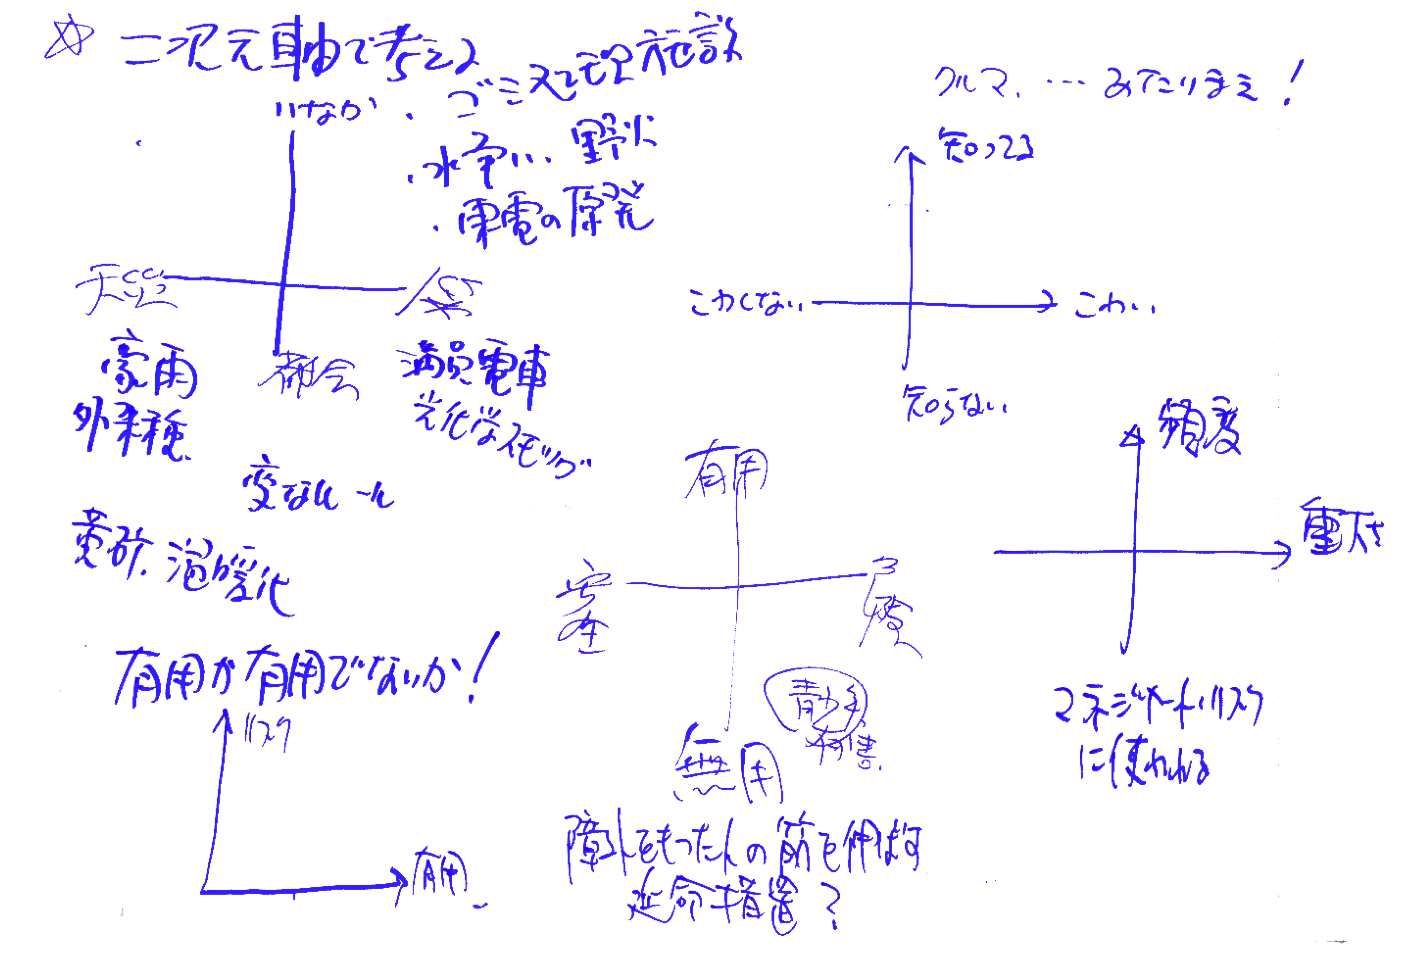 ☆ 二次元軸で考える
いなか
・ゴミ処理施設
・水争い、野火
・東電の原発
天災
人災
都会
豪雨
外来種
満員電車
光化学スモッグ
変なルール
黄砂、温暖化
クルマ、…あたりまえ!
知ってる
こわくない
こわい
知らない
有用
安全
危険
無用
有害
頻度
重大さ
マネジメート リスク
に使われる
有用か有用でないか!
リスク
有用
障外をもった人の筋を伸ばす
延命措置?